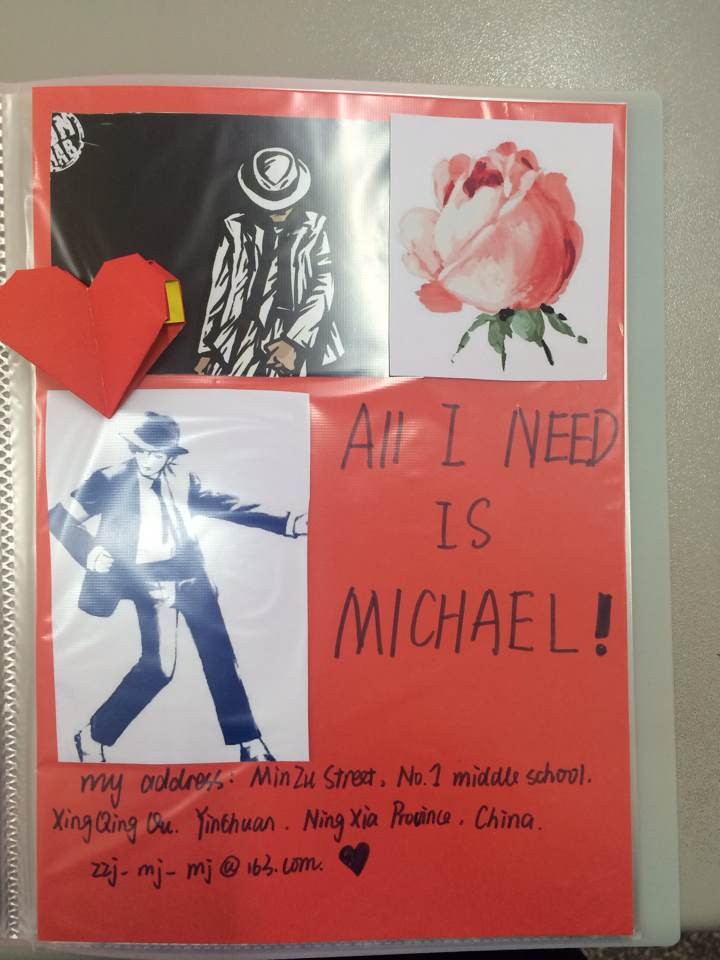 All I NEED
IS
MICHAEL!
my address: MinZu Street, No.1 middle school.
XingQing Qu. Yinchuan. NingXia Province, China.
zzj-mj-mj@163.com.